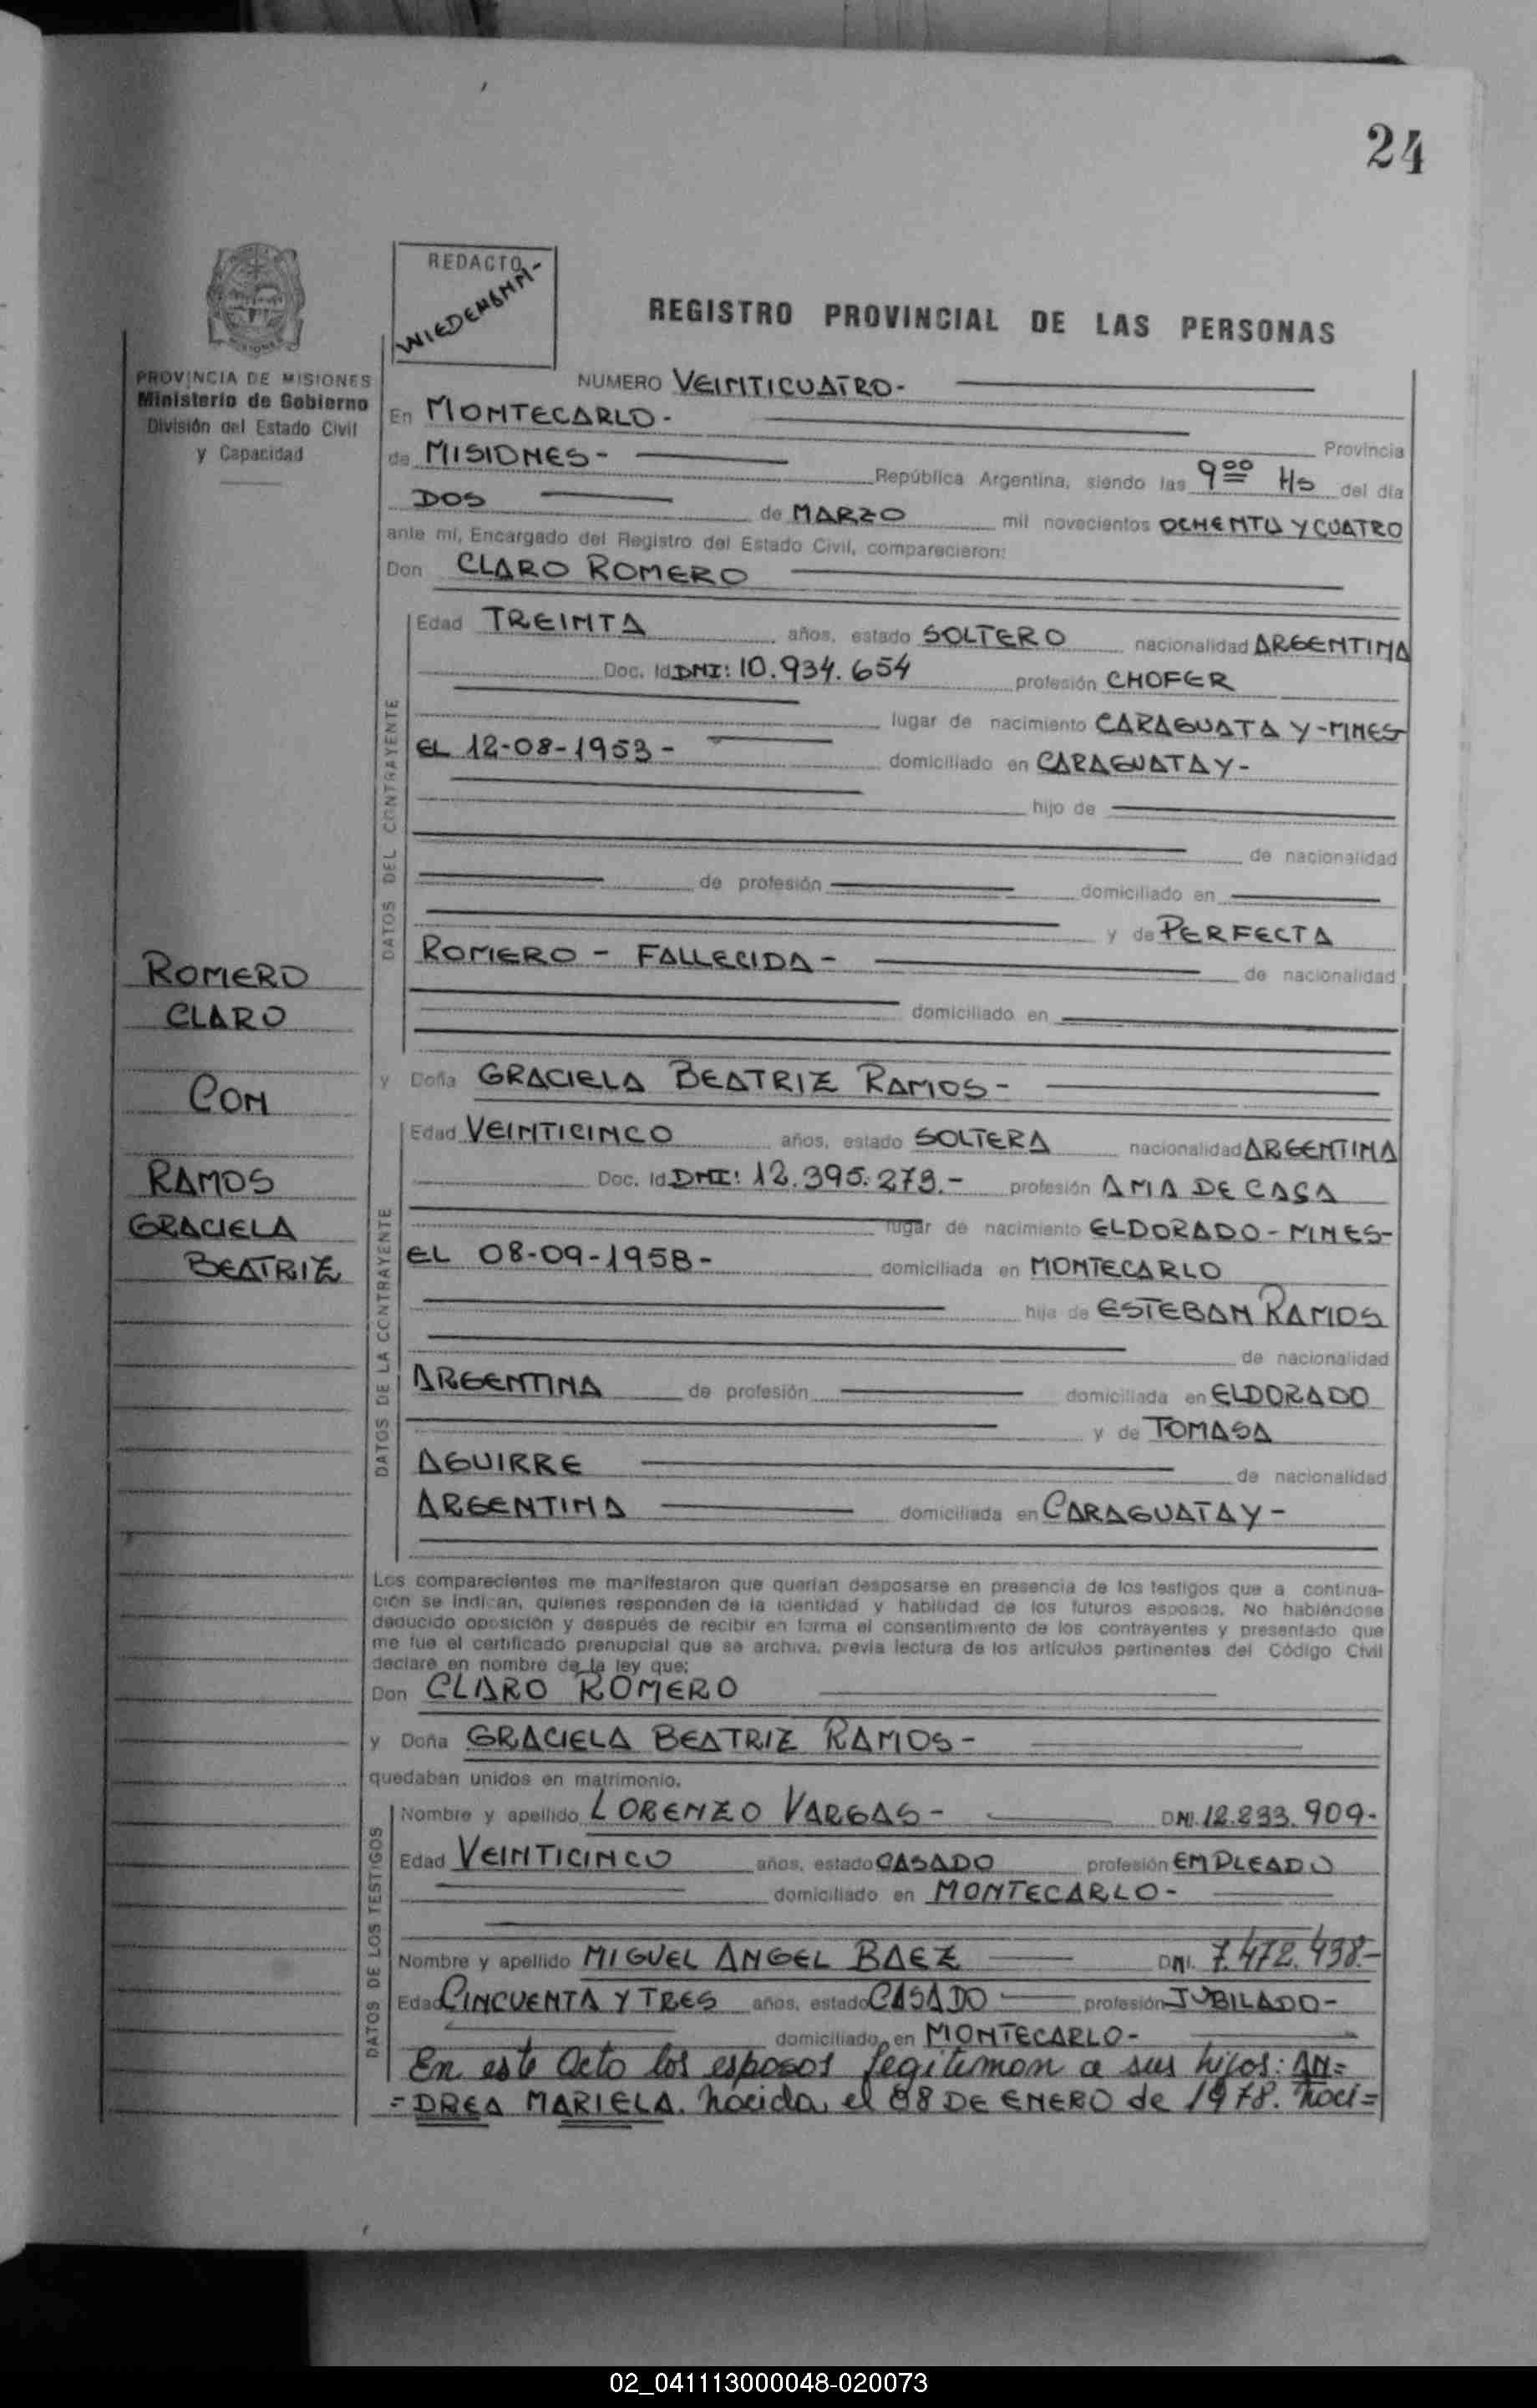 24
REDACTO
WIEDEMANN-
REGISTRO PROVINCIAL DE LAS PERSONAS
PROVINCIA DE MISIONES
Ministerio de Gobierno
División del Estado Civil
y Capacidad
NUMERO VEINTICUATRO-
En MONTECARLO- Provincia
de MISIONES- República Argentina, siendo las 9⁰⁰ Hs del día
DOS de MARZO mil novecientos OCHENTA Y CUATRO
ante mí, Encargado del Registro del Estado Civil, comparecieron:
Don CLARO ROMERO
DATOS DEL CONTRAYENTE
Edad TREINTA años, estado SOLTERO nacionalidad ARGENTINA
Doc. Id DNI: 10.934.654 profesión CHOFER
lugar de nacimiento CARAGUATAY-MNES
EL 12-08-1953- domiciliado en CARAGUATAY-
hijo de
de nacionalidad
de profesión domiciliado en
y de PERFECTA
ROMERO - FALLECIDA- de nacionalidad
domiciliado en
ROMERO
CLARO
CON
RAMOS
GRACIELA
BEATRIZ
y Doña GRACIELA BEATRIZ RAMOS-
DATOS DE LA CONTRAYENTE
Edad VEINTICINCO años, estado SOLTERA nacionalidad ARGENTINA
Doc. Id DNI: 12.395.279.- profesión AMA DE CASA
lugar de nacimiento ELDORADO-MNES-
EL 08-09-1958- domiciliada en MONTECARLO
hija de ESTEBAN RAMOS
de nacionalidad
ARGENTINA de profesión domiciliada en ELDORADO
y de TOMASA
AGUIRRE de nacionalidad
ARGENTINA domiciliada en CARAGUATAY-
Los comparecientes me manifestaron que querían desposarse en presencia de los testigos que a continua-
ción se indican, quienes responden de la identidad y habilidad de los futuros esposos. No habiéndose
deducido oposición y después de recibir en forma el consentimiento de los contrayentes y presentado que
me fue el certificado prenupcial que se archiva, previa lectura de los artículos pertinentes del Código Civil
declaré en nombre de la ley que:
Don CLARO ROMERO
y Doña GRACIELA BEATRIZ RAMOS-
quedaban unidos en matrimonio.
DATOS DE LOS TESTIGOS
Nombre y apellido LORENZO VARGAS- DNI. 12.233.909-
Edad VEINTICINCO años, estado CASADO profesión EMPLEADO
domiciliado en MONTECARLO-
Nombre y apellido MIGUEL ANGEL BAEZ DNI. 7.472.438.-
Edad CINCUENTA Y TRES años, estado CASADO profesión JUBILADO-
domiciliado en MONTECARLO-
En este acto los esposos legitiman a sus hijos: AN=
=DREA MARIELA. nacida, el 08 DE ENERO de 1978. naci=
02_041113000048-020073